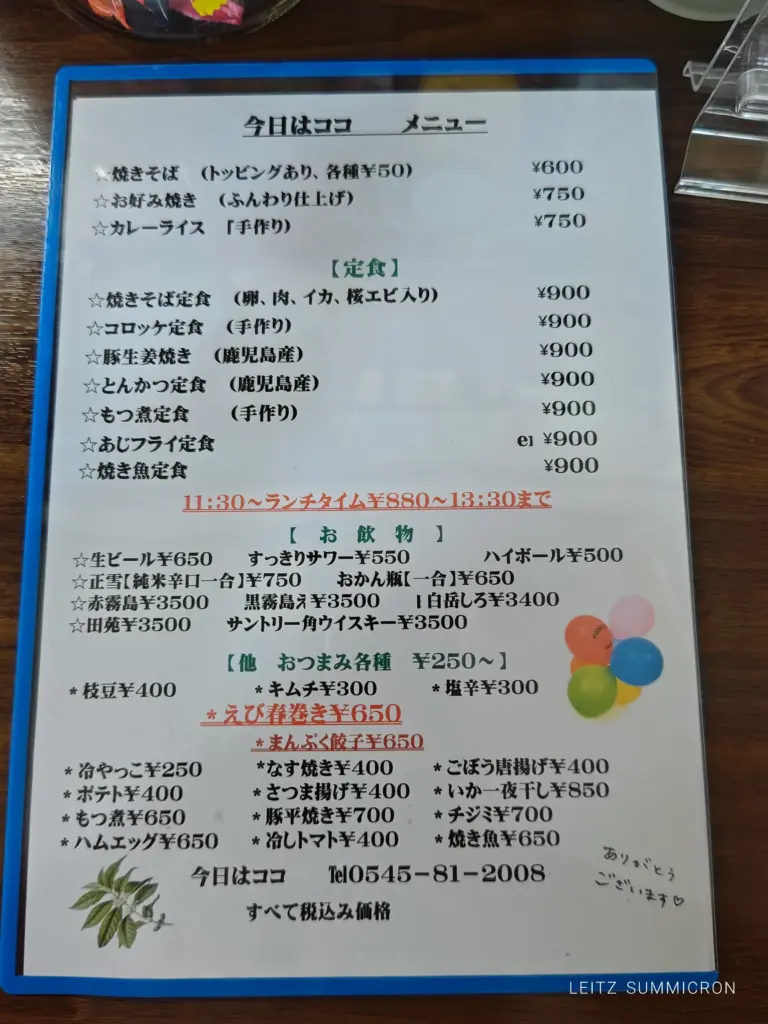 今日はココ　　メニュー
☆焼きそば　（トッピングあり、各種￥50）　¥600
☆お好み焼き　（ふんわり仕上げ）　¥750
☆カレーライス　「手作り）　¥750
【定食】
☆焼きそば定食　（卵、肉、イカ、桜エビ入り）　¥900
☆コロッケ定食　（手作り）　¥900
☆豚生姜焼き　（鹿児島産）　¥900
☆とんかつ定食　（鹿児島産）　¥900
☆もつ煮定食　　（手作り）　¥900
☆あじフライ定食　eı ¥900
☆焼き魚定食　¥900
11:30～ランチタイム￥880～13:30まで
【　お　飲　物　】
☆生ビール￥650　すっきりサワー￥550　ハイボール￥500
☆正雪【純米辛口一合】￥750　おかん瓶【一合】￥650
☆赤霧島￥3500　黒霧島え￥3500　白岳しろ￥3400
☆田苑￥3500　サントリー角ウイスキー￥3500
【他　おつまみ各種　￥250～】
*枝豆￥400　*キムチ￥300　*塩辛￥300
*えび春巻き￥650
*まんぷく餃子￥650
*冷やっこ￥250　*なす焼き￥400　*ごぼう唐揚げ￥400
*ポテト￥400　*さつま揚げ￥400　*いか一夜干し￥850
*もつ煮￥650　*豚平焼き￥700　*チジミ￥700
*ハムエッグ￥650　*冷しトマト￥400　*焼き魚￥650
今日はココ　℡0545－81－2008
すべて税込み価格
ありがとう
ございます♡
LEITZ SUMMICRON